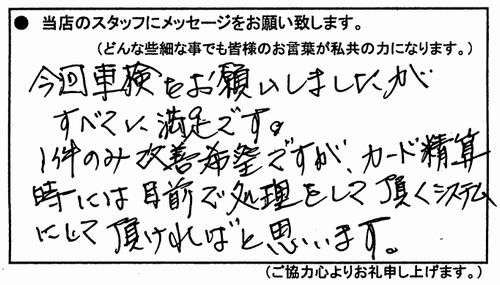 ● 当店のスタッフにメッセージをお願い致します。
(どんな些細な事でも皆様のお言葉が私共の力になります。)
今回車検をお願いしましたが
すべてに満足です。
1件のみ改善希望ですが、カード精算
時には目前で処理をして頂くシステム
にして頂ければと思います。
(ご協力心よりお礼申し上げます。)